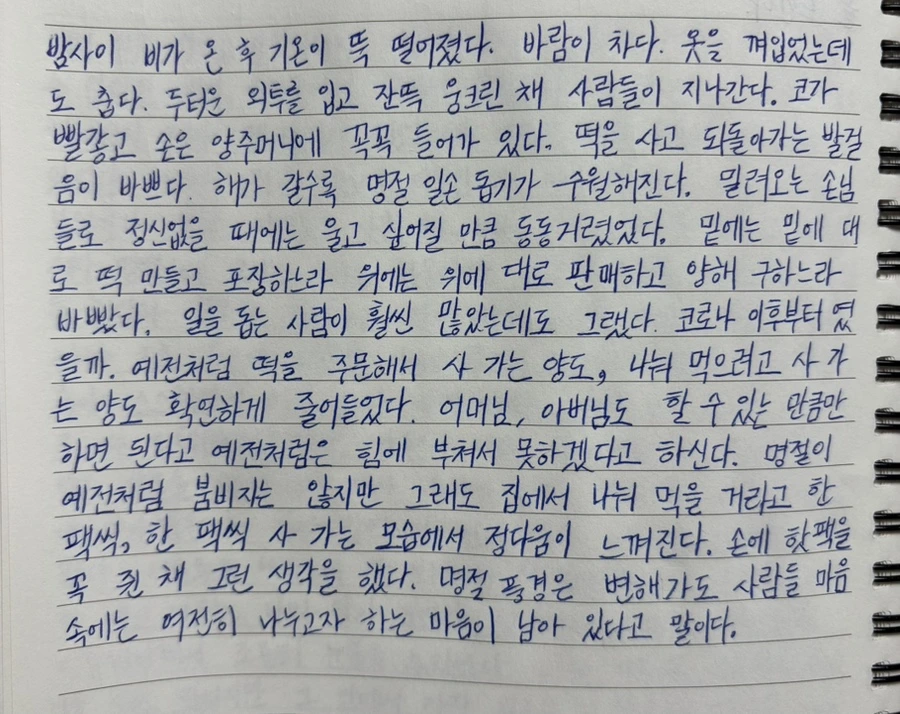 밤사이 비가 온 후 기온이 뚝 떨어졌다. 바람이 차다. 옷을 껴입었는데
도 춥다. 두터운 외투를 입고 잔뜩 웅크린 채 사람들이 지나간다. 코가
빨갛고 손은 양주머니에 꼭꼭 들어가 있다. 떡을 사고 되돌아가는 발걸
음이 바쁘다. 해가 갈수록 명절 일손 돕기가 수월해진다. 밀려오는 손님
들로 정신없을 때에는 울고 싶어질 만큼 동동거렸었다. 밑에는 밑에 대
로 떡 만들고 포장하느라 위에는 위에 대로 판매하고 양해 구하느라
바빴다. 일을 돕는 사람이 훨씬 많았는데도 그랬다. 코로나 이후부터 였
을까. 예전처럼 떡을 주문해서 사 가는 양도, 나눠 먹으려고 사 가
는 양도 확연하게 줄어들었다. 어머님, 아버님도 할 수 있는 만큼만
하면 된다고 예전처럼은 힘에 부쳐서 못하겠다고 하신다. 명절이
예전처럼 붐비지는 않지만 그래도 집에서 나눠 먹을 거라고 한
팩씩, 한 팩씩 사 가는 모습에서 정다움이 느껴진다. 손에 핫팩을
꼭 쥔 채 그런 생각을 했다. 명절 풍경은 변해가도 사람들 마음
속에는 여전히 나누고자 하는 마음이 남아 있다고 말이다.